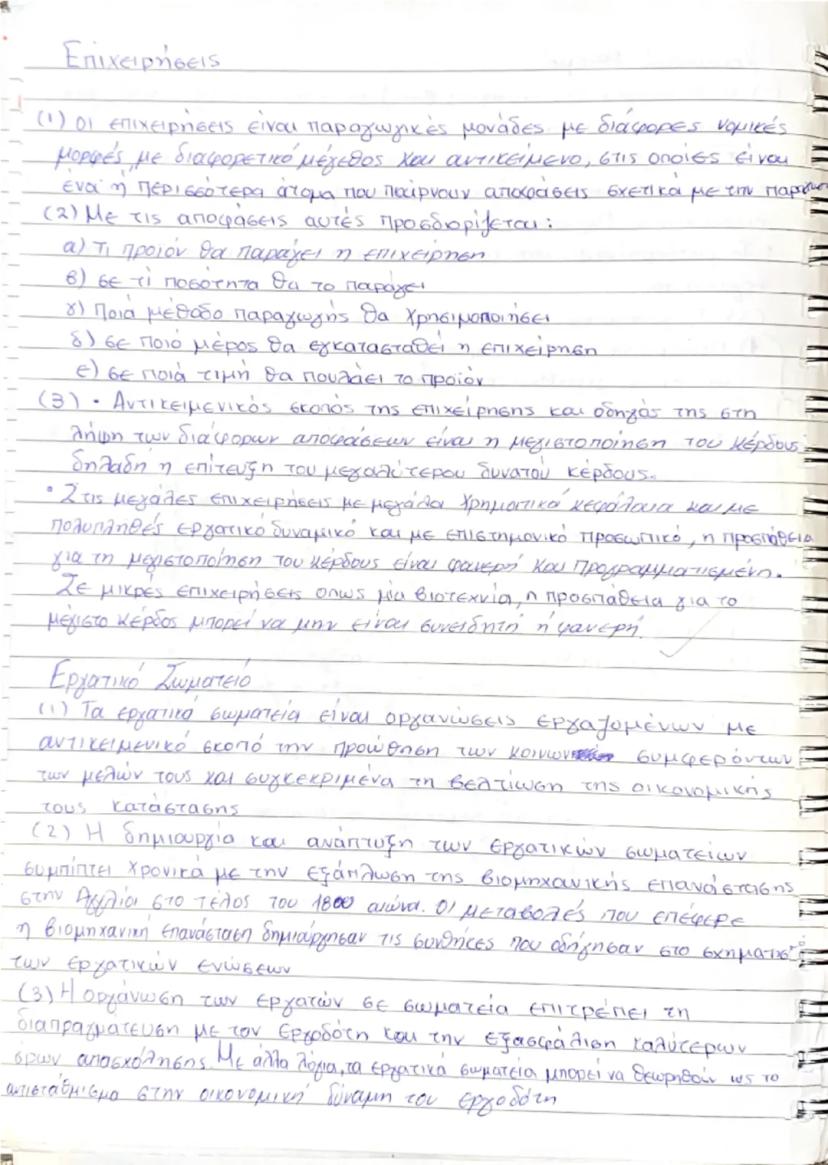 Επιχειρήσεις
(1) Οι επιχειρήσεις είναι παραγωγικές μονάδες με διάφορες νομικές
μορφές, με διαφορετικό μέγεθος και αντικείμενο, στις οποίες είναι
ένα ή περισσότερα άτομα που παίρνουν αποφάσεις σχετικά με την
(2) Με τις αποφάσεις αυτές προσδιορίζεται:
α) Τι προϊόν θα παράγει η επιχείρηση
β) σε τι ποσότητα θα το παράγει
γ) Ποιά μέθοδο παραγωγής θα χρησιμοποιήσει
δ) σε ποιό μέρος θα εγκατασταθεί η επιχείρηση
ε) σε ποιά τιμή θα πουλάει το προϊόν
(3) • Αντικειμενικός σκοπός της επιχείρησης και οδηγός της στη
λήψη των διάφορων αποφάσεων είναι η μεγιστοποίηση του κέρδους
δηλαδή η επίτευξη του μεγαλύτερου δυνατού κέρδους.
• Στις μεγάλες επιχειρήσεις με μεγάλα χρηματικά κεφάλαια και με
πολυπληθές εργατικό δυναμικό και με επιστημονικό προσωπικό, η προσπάθεια
για τη μεγιστοποίηση του κέρδους είναι φανερή και προγραμματισμένη.
Σε μικρές επιχειρήσεις οπως μία βιοτεχνία, η προσπάθεια για το
μέγιστο κέρδος μπορεί να μην είναι συνειδητή ή φανερή.
Εργατικό Σωματείο
(1) Τα εργατικά σωματεία είναι οργανώσεις εργαζομένων με
αντικειμενικό σκοπό την προώθηση των κοινων συμφερόντων
των μελών τους και συγκεκριμένα τη βελτίωση της οικονομικής
τους κατάστασης
(2) Η δημιουργία και ανάπτυξη των εργατικών σωματείων
συμπίπτει χρονικά με την εξάπλωση της βιομηχανικής επανάστασης
στην Αγγλία στο τέλος του 1800 αιώνα. Οι μεταβολές που επέφερε
η βιομηχανική επανάσταση δημιούργησαν τις συνθήκες που οδήγησαν στο σχηματισμό
των εργατικών ενώσεων
(3) Η οργάνωση των εργατών σε σωματεία επιτρέπει τη
διαπραγμάτευση με τον εργοδότη και την εξασφάλιση καλύτερων
όρων απασχόλησης. Με άλλα λόγια, τα εργατικά σωματεία μπορεί να θεωρηθούν ως το
αντιστάθμισμα στην οικονομική δύναμη του εργοδότη